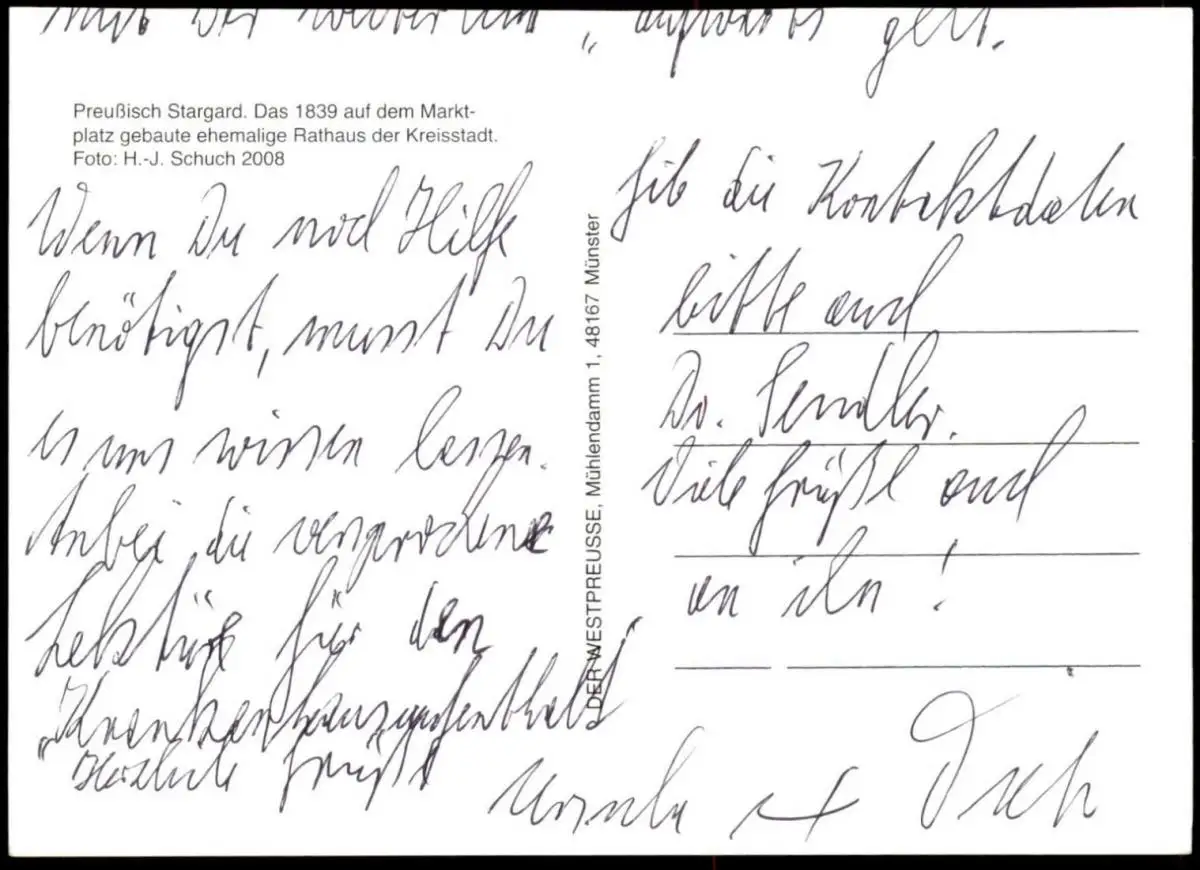 " aufwärts geht.
Preußisch Stargard. Das 1839 auf dem Markt-
platz gebaute ehemalige Rathaus der Kreisstadt.
Foto: H.-J. Schuch 2008
Wenn Du noch Hilfe
benötigst, musst Du
es uns wissen lassen.
Anbei die versprochene
Lektüre für den
"Krankenhausaufenthalt"
Herzliche Grüße
Ursula +
DER WESTPREUSSE, Mühlendamm 1, 48167 Münster
Gib die Kontaktdaten
bitte auch
Dr. Sendler.
Viele Grüße auch
an ihn!